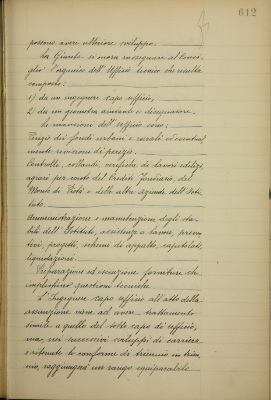 612
possono avere ulteriore sviluppo.
La Giunta si onora rassegnare al Consi-
glio l'organico dell'Ufficio tecnico che risulta
composto:
1) da un ingegnere capo ufficio,
2) da un geometra aiutante e disegnatore.
Le mansioni dell'ufficio sono:
Perizie dei fondi urbani e rurali ed eventual
mente revisioni di perizie.
Controlli, collaudi, verifiche di lavori edilizi,
agrari per conto del Credito Fondiario, del
Monte di Pietà e delle altre aziende dell'Isti-
tuto.
Amministrazione e manutenzione degli sta-
bili dell'Istituto, assistenza a lavori, preven-
tivi, progetti, schemi di appalto, capitolati,
liquidazioni.
Preparazione ed esecuzione forniture che
implichino questioni tecniche.
L'Ingegnere capo ufficio all'atto della
assunzione viene ad avere trattamento
simile a quello del sotto capo di ufficio,
ma, nei successivi sviluppi di carriera
e ritenute le conferme di triennio in trien-
nio, raggiungerà un rango equiparabile